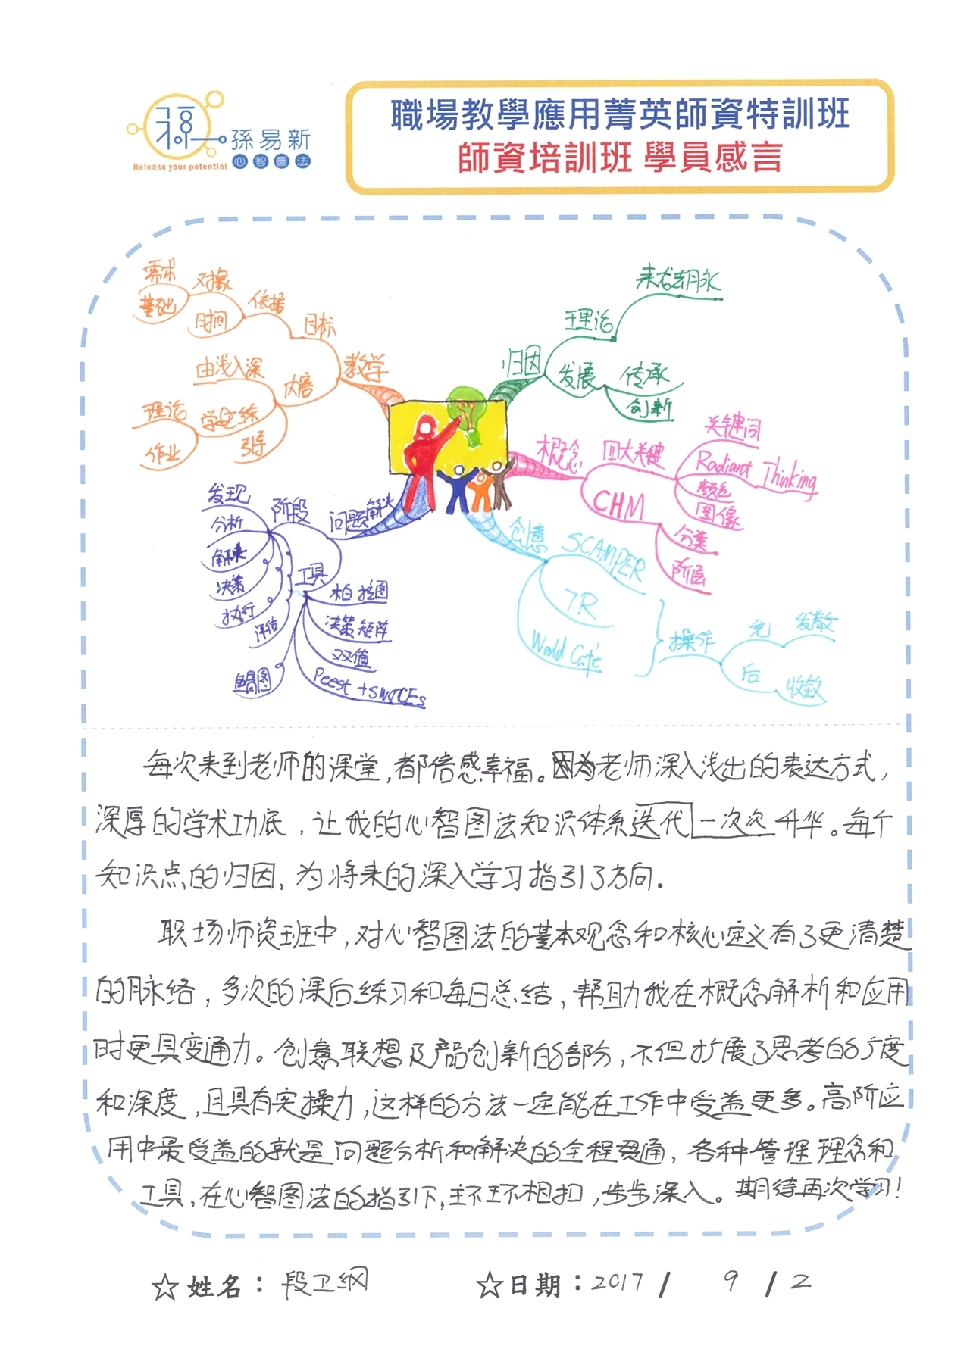 孫易新
心智圖法
Release your potential
職場教學應用菁英師資特訓班
師資培訓班 學員感言
教学
目标
依据
对象
需求
基础
时间
内容
由浅入深
学员练
引导
理论
作业
归因
理论
来龙去脉
发展
传承
创新
概念
四大关键
关键词
Radiant Thinking
颜色
图像
CHM
分类
阶层
创意
SCAMPER
7R
World Café
操作
先
发散
后
收敛
问题解决
阶段
发现
分析
解决
决策
执行
评估
工具
柏拉图
决策矩阵
双值
Peest + SWTCEs
鱼骨图
每次来到老师的课堂，都倍感幸福。因为老师深入浅出的表达方式，
深厚的学术功底，让我的心智图法知识体系迭代一次次升华。每个
知识点的归因，为将来的深入学习指引了方向.
职场师资班中，对心智图法的基本观念和核心定义有了更清楚
的脉络，多次的课后练习和每日总结，帮助我在概念解析和应用
时更具变通力。创意联想及产品创新的部分，不但扩展了思考的广度
和深度，且具有实操力，这样的方法一定能在工作中受益更多。高阶应
用中最受益的就是问题分析和解决的全程贯通，各种管理理念和
工具，在心智图法的指引下，环环相扣，步步深入。期待再次学习！
☆姓名：段卫纲
☆日期：2017 / 9 / 2